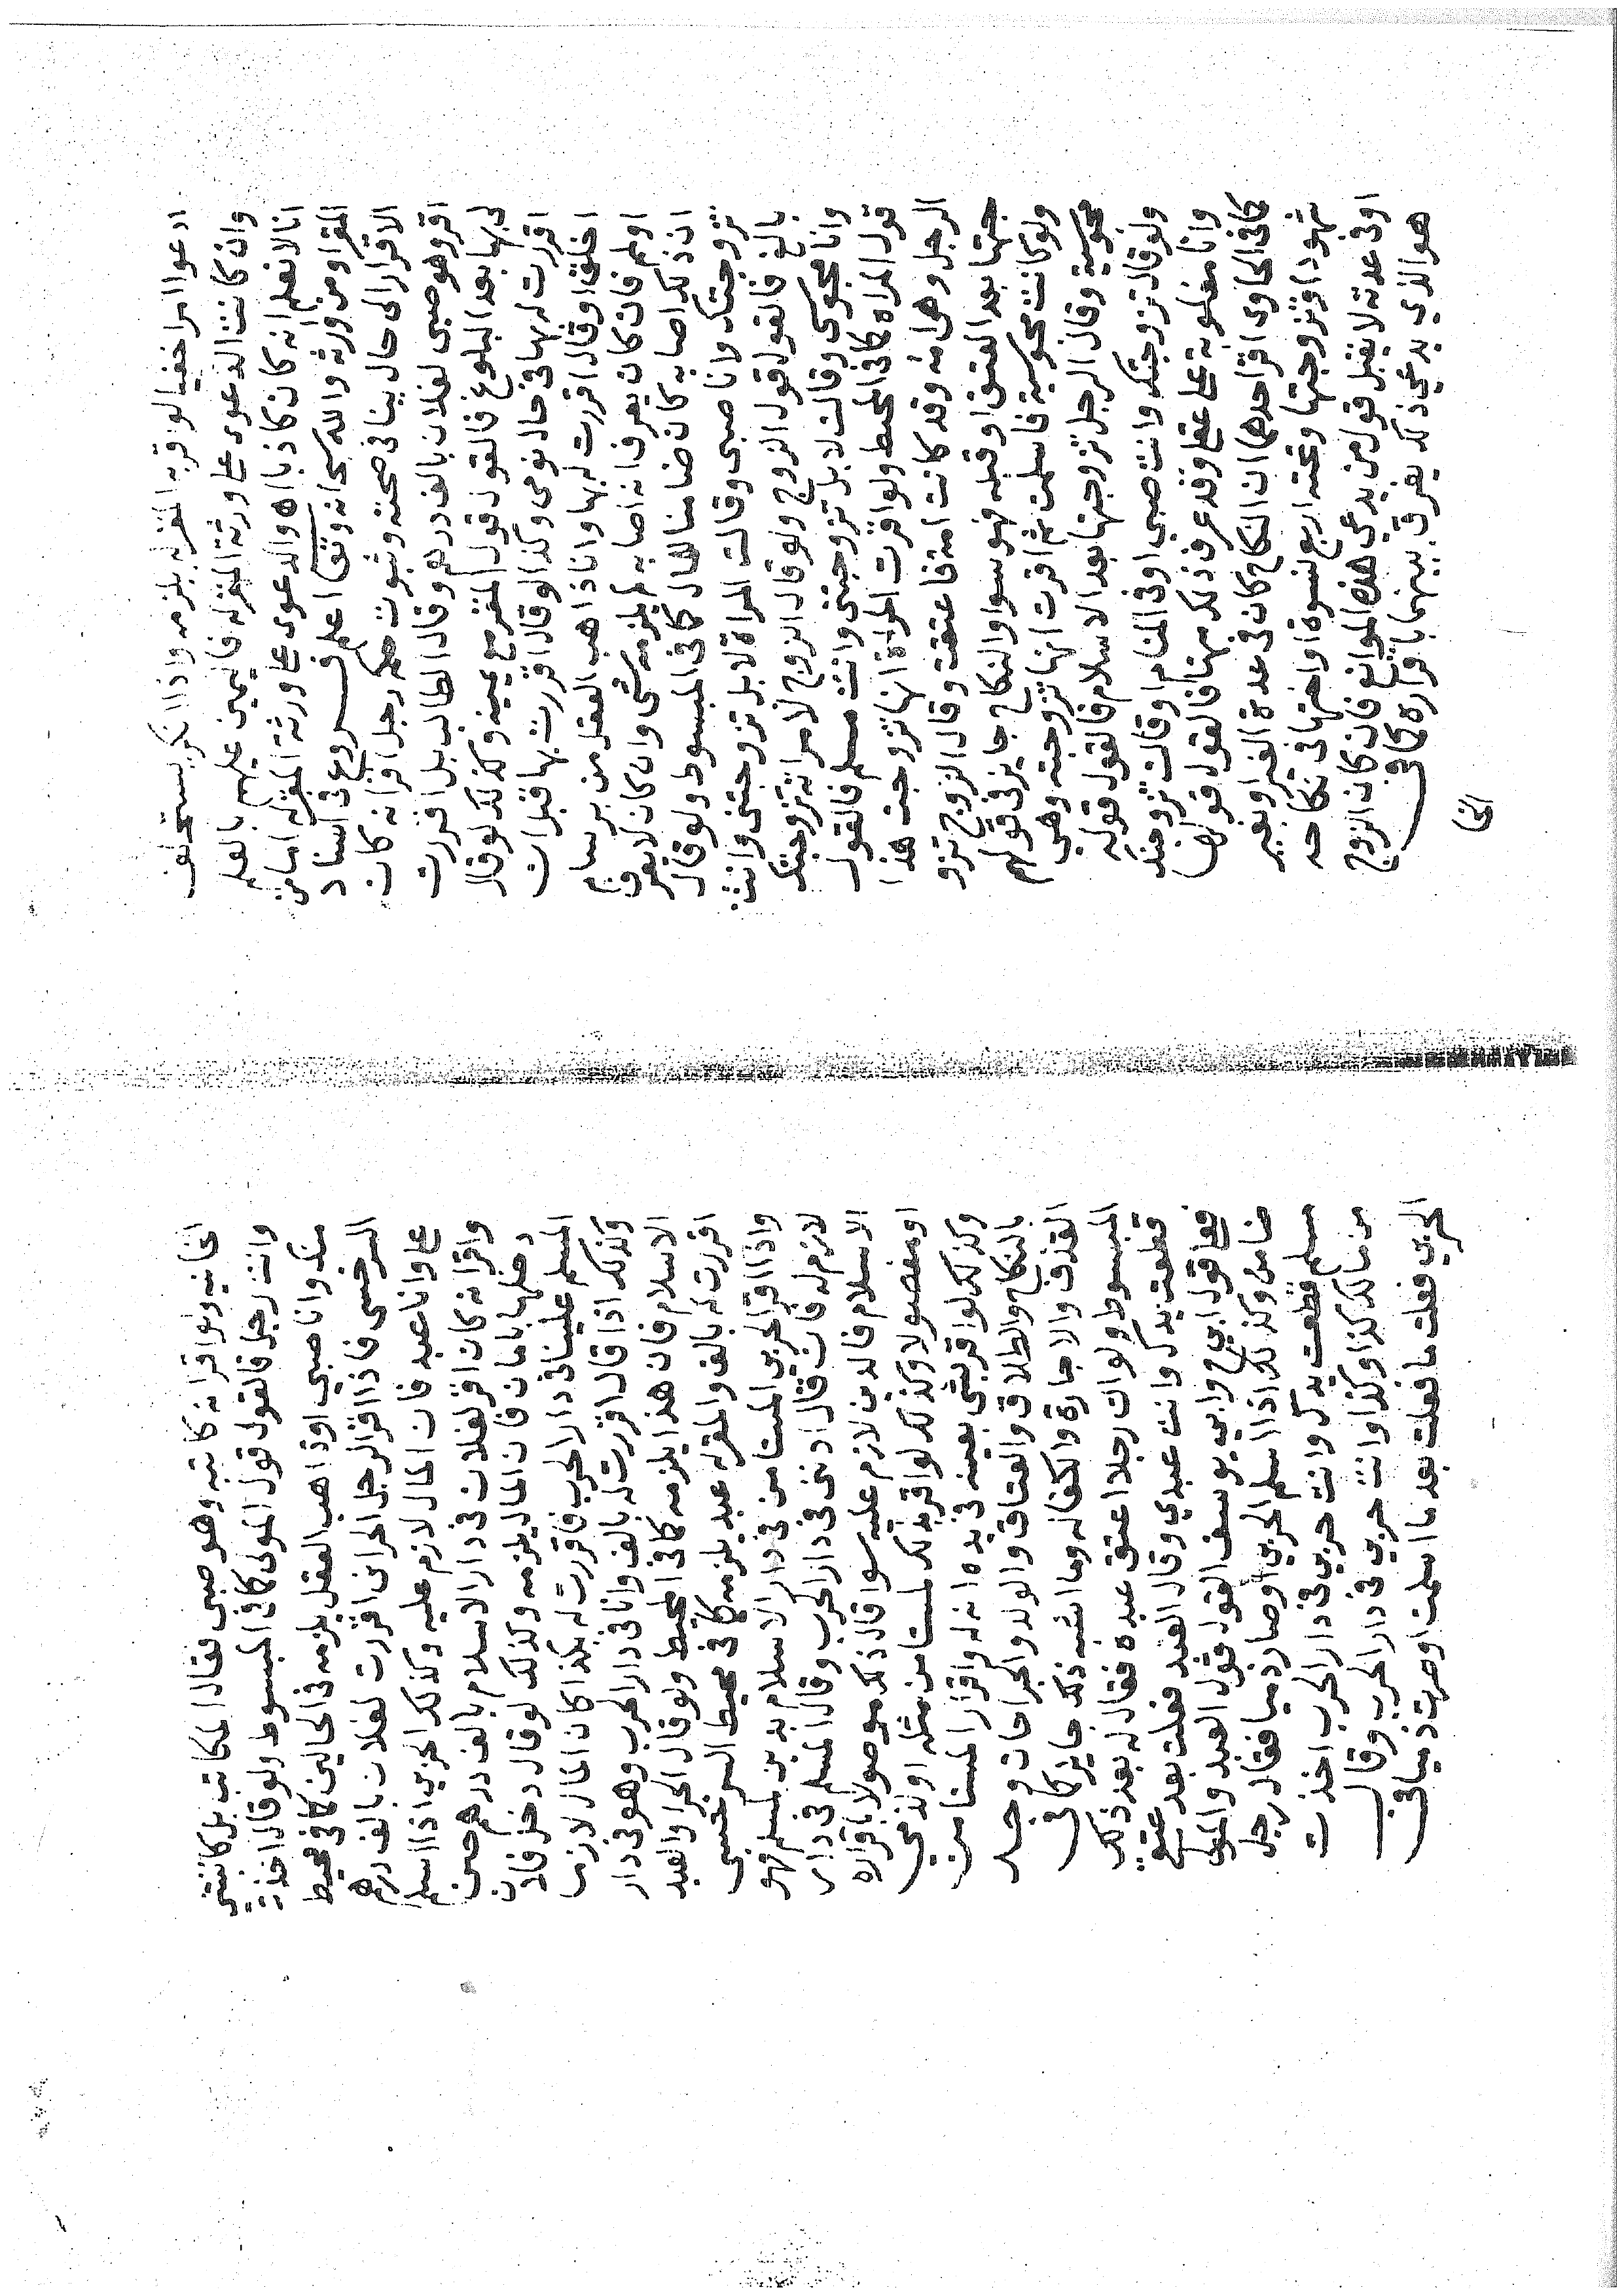 ادعوا امرا خفيا لو اقر به المقر له يلزمه واذا انكر يستحلف
وان كانت الدعوى على ورثة المقر له فاليمين عليهم بالعلم
انا لا نعلم انه كان كاذبا اه والدعوى على ورثة المقر له اما من
المقر او من ورثه والله سبحانه وتعا اعلم فـــروع في اسناد
الاقرار الى حال ينافي صحته وثبوت حكمه رجل اقر انه كان
اقر وهو صبى لفلان بالف درهم وقال الطالب بل اقررت
لي بها بعد البلوغ فالقول قول المقر مع يمينه وكذلك لو قال
اقررت له بها في حال نومى وكذا لو قال اقررت بها قبل ان
اخلق او قال اقررت له بها وانا ذاهب العقل من برسام
او لمم فان كان يعرف انه اصابه لم يلزمه شى وان كان لا يعرف
ان ذلك اصابه كان ضامنا للمال كما في المبسوط ولو قال
تزوجتك وانا صبى وقالت المراة لا بل تزوجتنى وانت
بالغ فالقول قول الزوج ولو قال الزوج لامراته تزوجتك
وانا مجوسى وقالت لا بل تزوجتنى وانت مسلم فالقول
قول المراه كما في المحيط ولو اقرت المراة انها تزوجت هذا
الرجل وهى امة وقد كانت امة فاعتقت وقال الزوج تزو
جتها بعد العتق او قبله فهو سوا والنكاح جايز في قولهم
ولو كانت مجوسية فاسلمت ثم اقرت انها تزوجته وهى
مجوسية وقال الرجل تزوجتها بعد الاسلام فالقول قوله
ولو قال تزوجتك وانت صبي او في المنام او قالت تزوجتك
وانا مغلوبة على عقلي وقد عرف ذلك منها فالقول قولها
كما في الحاوى اقر احدهما ان النكاح كان في عدة الغير او بغير
شهود او تزوجتها وتحته اربع نسوة او اختها في نكاحه
او في عدته لا يقبل قول من يدعي هذه الموانع فان كان الزوج
هو الذي يدعي ذلك يفرق بينهما باقراره كما في
الخا
الخانيه ولو اقر انه كاتبه وهو صبى فقال المكاتب بل كاتبتنى
وانت رجل فالقول قول المولى كما في المبسوط ولو قال اخذت
منك وانا صبي او ذاهب العقل يلزمه في الحالين كما في محيط
السرخسى فاذا اقر الرجل الحر انى اقررت لفلان بالف درهم
على وانا عبد فان المال لازم عليه وكذلك الحربي اذا اسلم
واقر انه كان اقر لفلان في دار الاسلام بالف درهم حين
دخلها بامان فان المال يلزمه وكذلك لو قال دخل فلان
المسلم علينا في دار الحرب فاقررت له بكذا كان المال لازما
وكذلك اذا قال اقررت له بالف وانا في دار الحرب وهو في دار
الاسلام فان هذا يلزمه كما في المحيط ولو قال الحر او العبد
اقررت له بالف والمقر له عبد يلزمه كما في محيط السرخسى
واذا اقر الحربي المستامن في دار الاسلام بدين لمسلم فهو
لازم له فان قال ادننى في دار الحرب وقال المسلم في دار
الاسلام فالدين لازم عليه سوا قال ذلك موصولا باقراره
او مفصولا وكذلك لو اقر بذلك لمستامن مثله او لذمي
وكذلك لو اقر بشى بعينه في يده انه له واقرار المستامن
بالنكاح والطلاق والعتاق والولد والجراحات وحد
القذف والاجارة والكفاله وما اشبه ذلك جايز كما في
المبسوط ولو ان رجلا اعتق عبده فقال له بعد ذلك
قطعت يدك وانت عبدي وقال العبد فعلت بعد عتق
فعلى قول ابي ح وابي يوسف القول قول العبد والمولى
ضامن وكذلك اذا اسلم الحربي او صار ذميا فقال رجل
مسلم قطعت يدك وانت حربي في دار الحرب اخذت
من مالك كذا وكذا وانت حربي في دار الحرب وقال
الحربي فعلت ما فعلت بعد ما اسلمت او صرت ذميا في